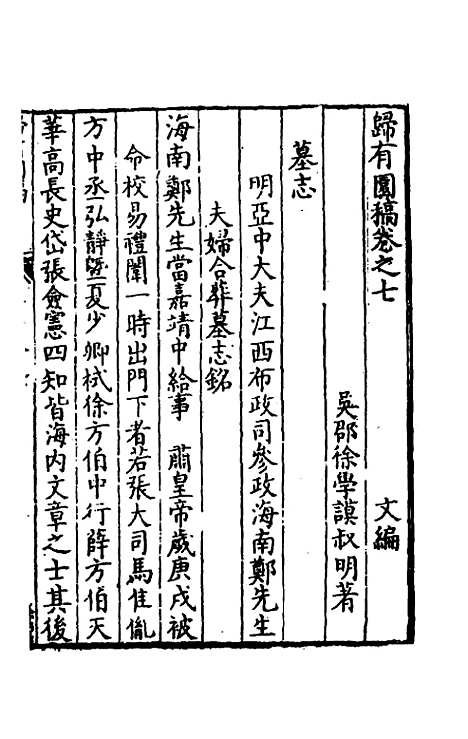 歸有園稿卷之七 文編
吳郡徐學謨叔明著
墓志
明亞中大夫江西布政司參政海南鄭先生
夫婦合葬墓志銘
海南鄭先生當嘉靖中給事 肅皇帝歲庚戌被
命校易禮闈一時出門下者若張大司馬佳胤
方中丞弘靜暨夏少卿栻徐方伯中行薛方伯天
華高長史岱張僉憲四知皆海內文章之士其後